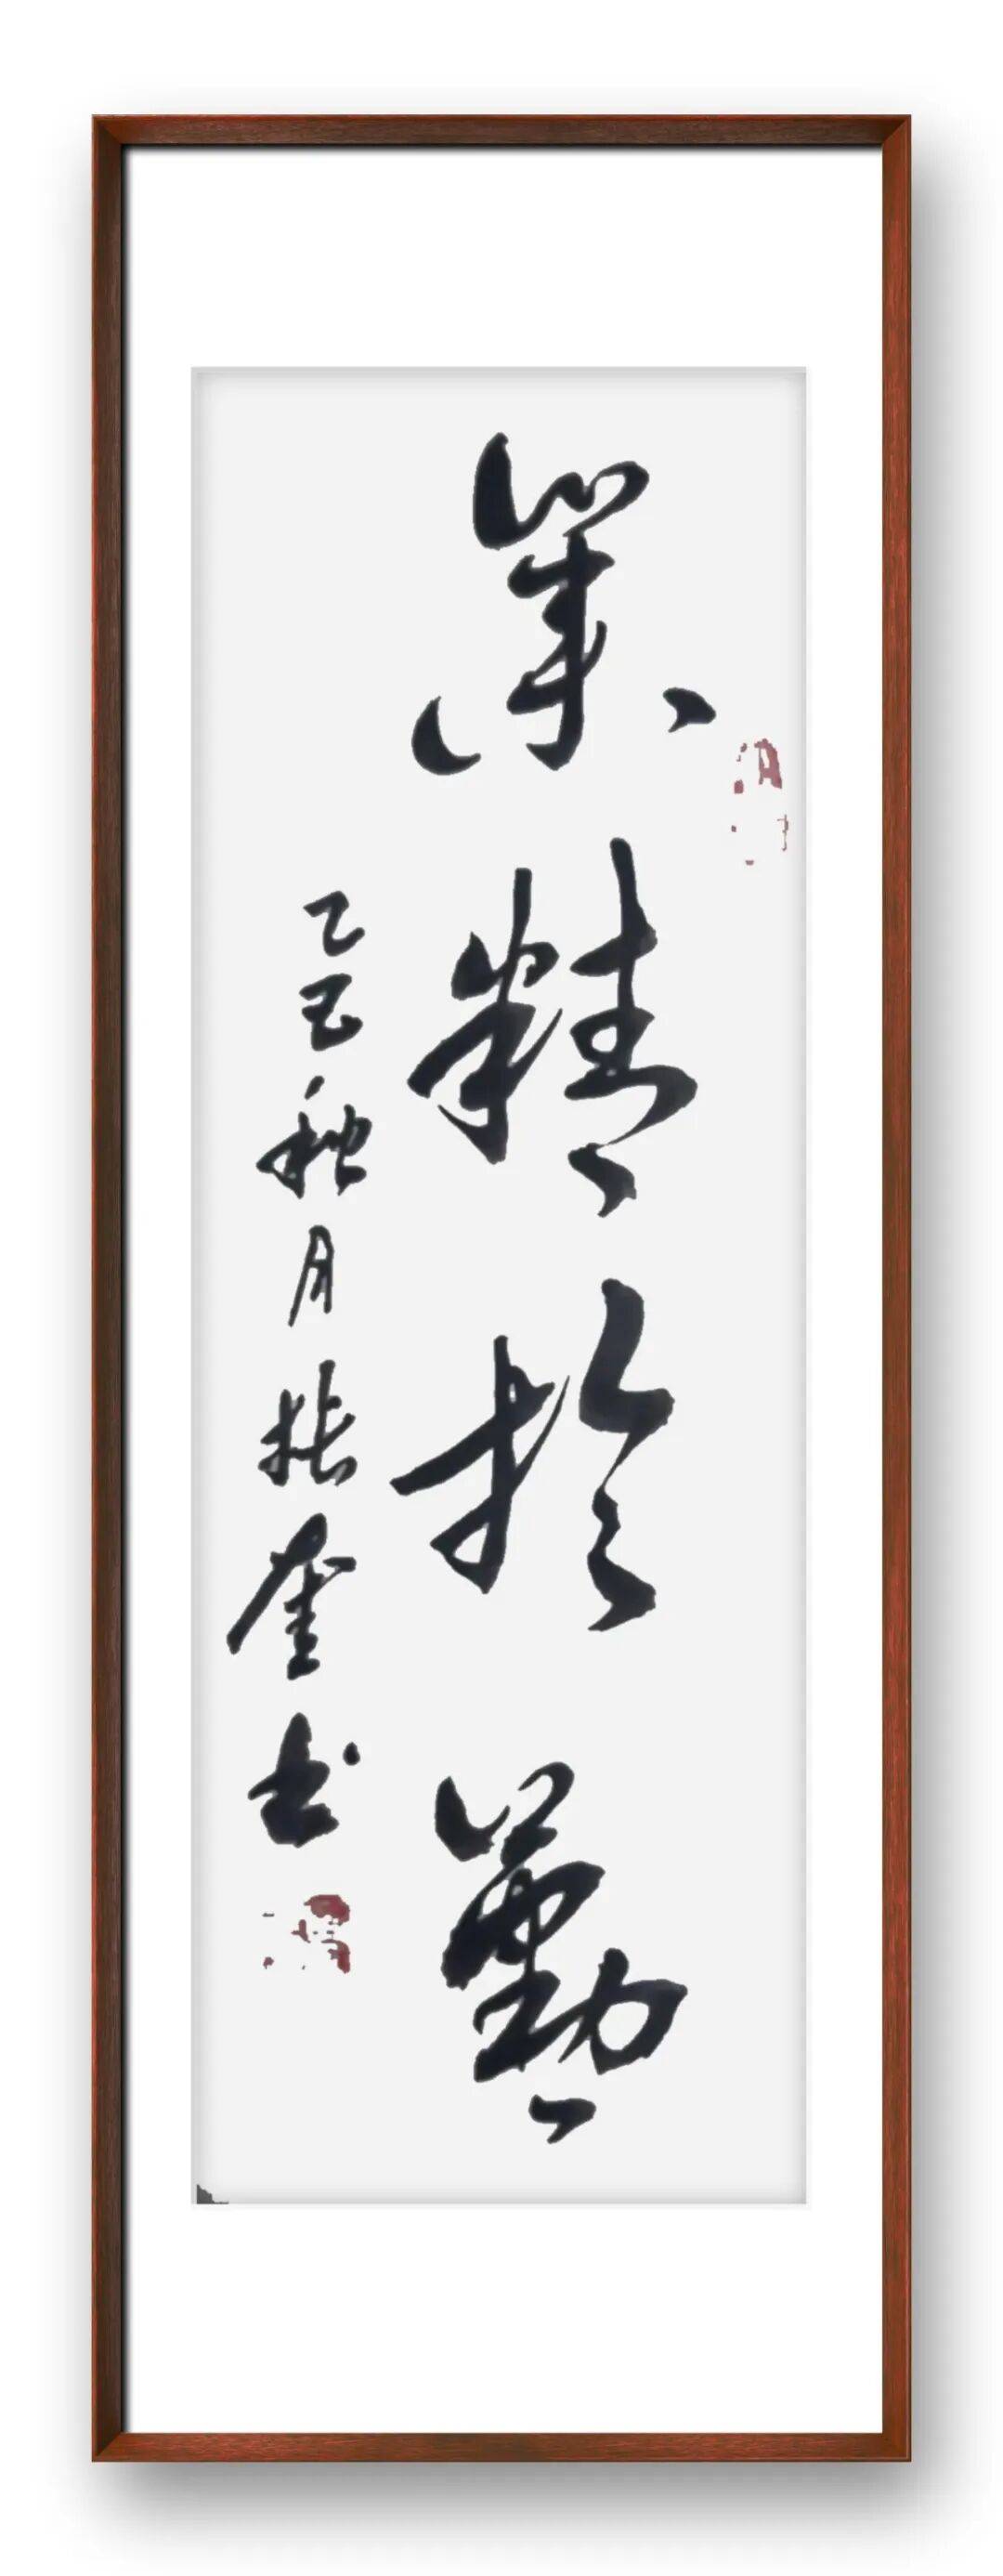 業精於勤
乙巳秋月張奎书